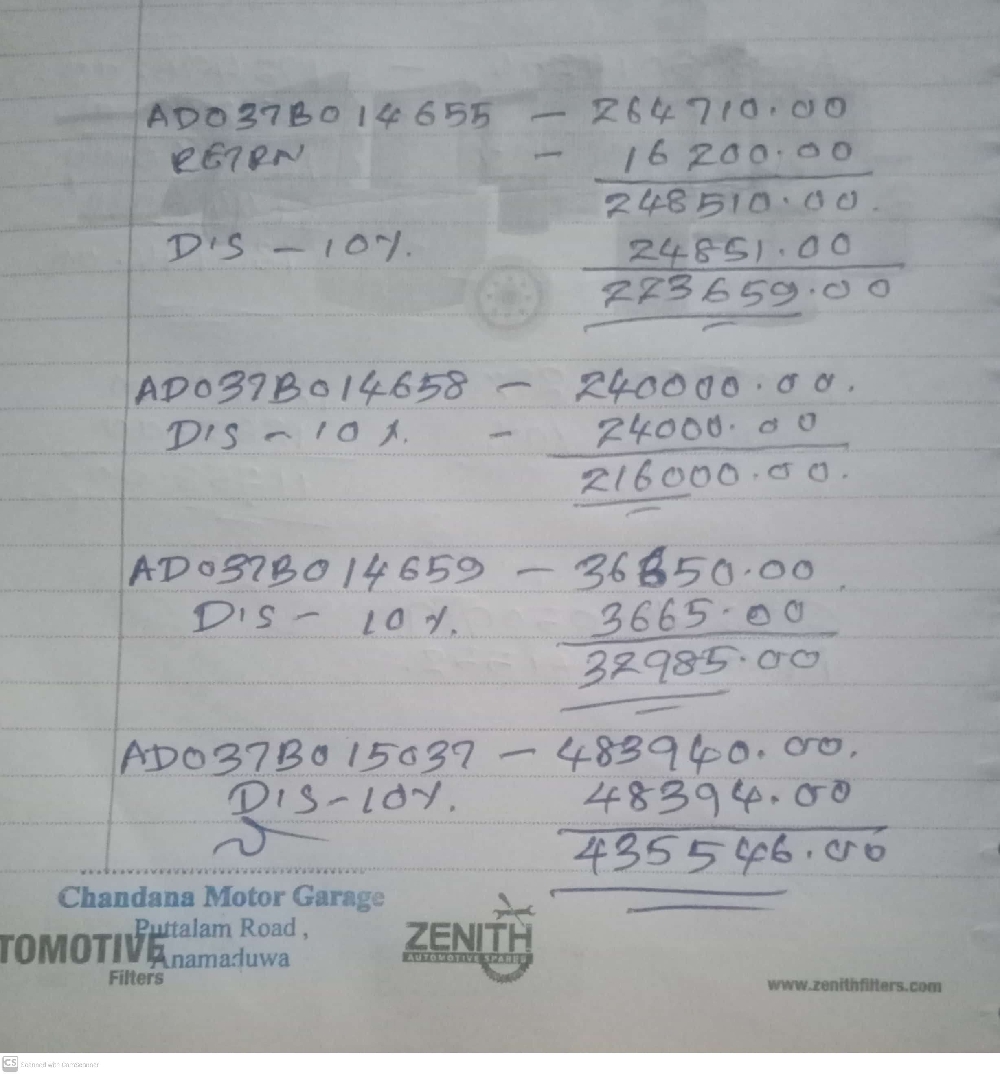 AD037B014655 - 264710.00
RETRN - 16200.00
248510.00.
DIS - 10%. 24851.00
223659.00
AD037B014658 - 240000.00.
DIS - 10%. - 24000.00
216000.00.
AD037B014659 - 36650.00
DIS - 10%. 3665.00
32985.00
AD037B015037 - 483940.00.
DIS - 10%. 48394.00
435546.00
Chandana Motor Garage
Puttalam Road,
Anamaduwa
TOMOTIVE
Filters
ZENITH
AUTOMOTIVE SPARES
www.zenithfilters.com
CS Scanned with CamScanner